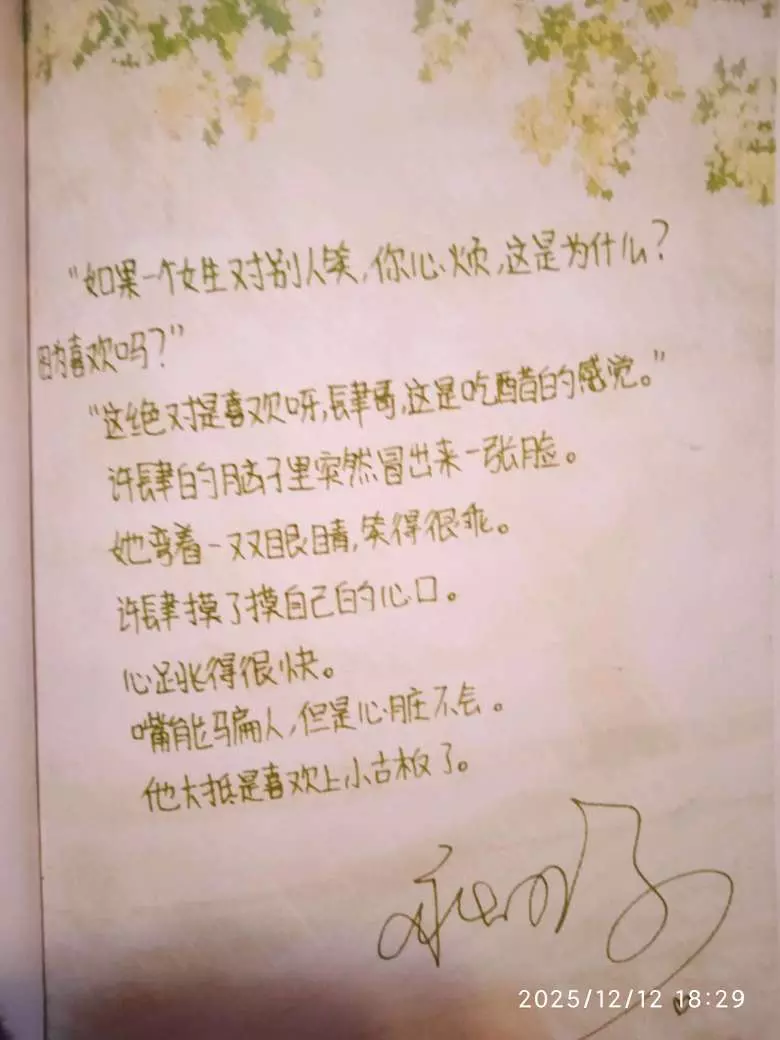 “如果一个女生对别人笑，你心烦，这是为什么？
因为喜欢吗？”
“这绝对是喜欢呀，肆哥，这是吃醋的感觉。”
许肆的脑子里突然冒出来一张脸。
她弯着一双眼睛，笑得很乖。
许肆摸了摸自己的心口。
心跳得很快。
嘴能骗人，但是心脏不会。
他大抵是喜欢上小古板了。
2025/12/12 18:29